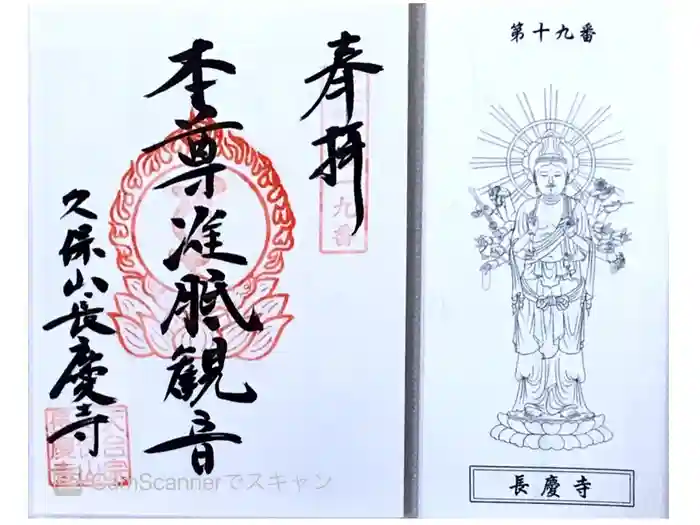 奉拝
十九番
本尊准胝観音
久保山長慶寺
CamScannerでスキャン
第十九番
長慶寺